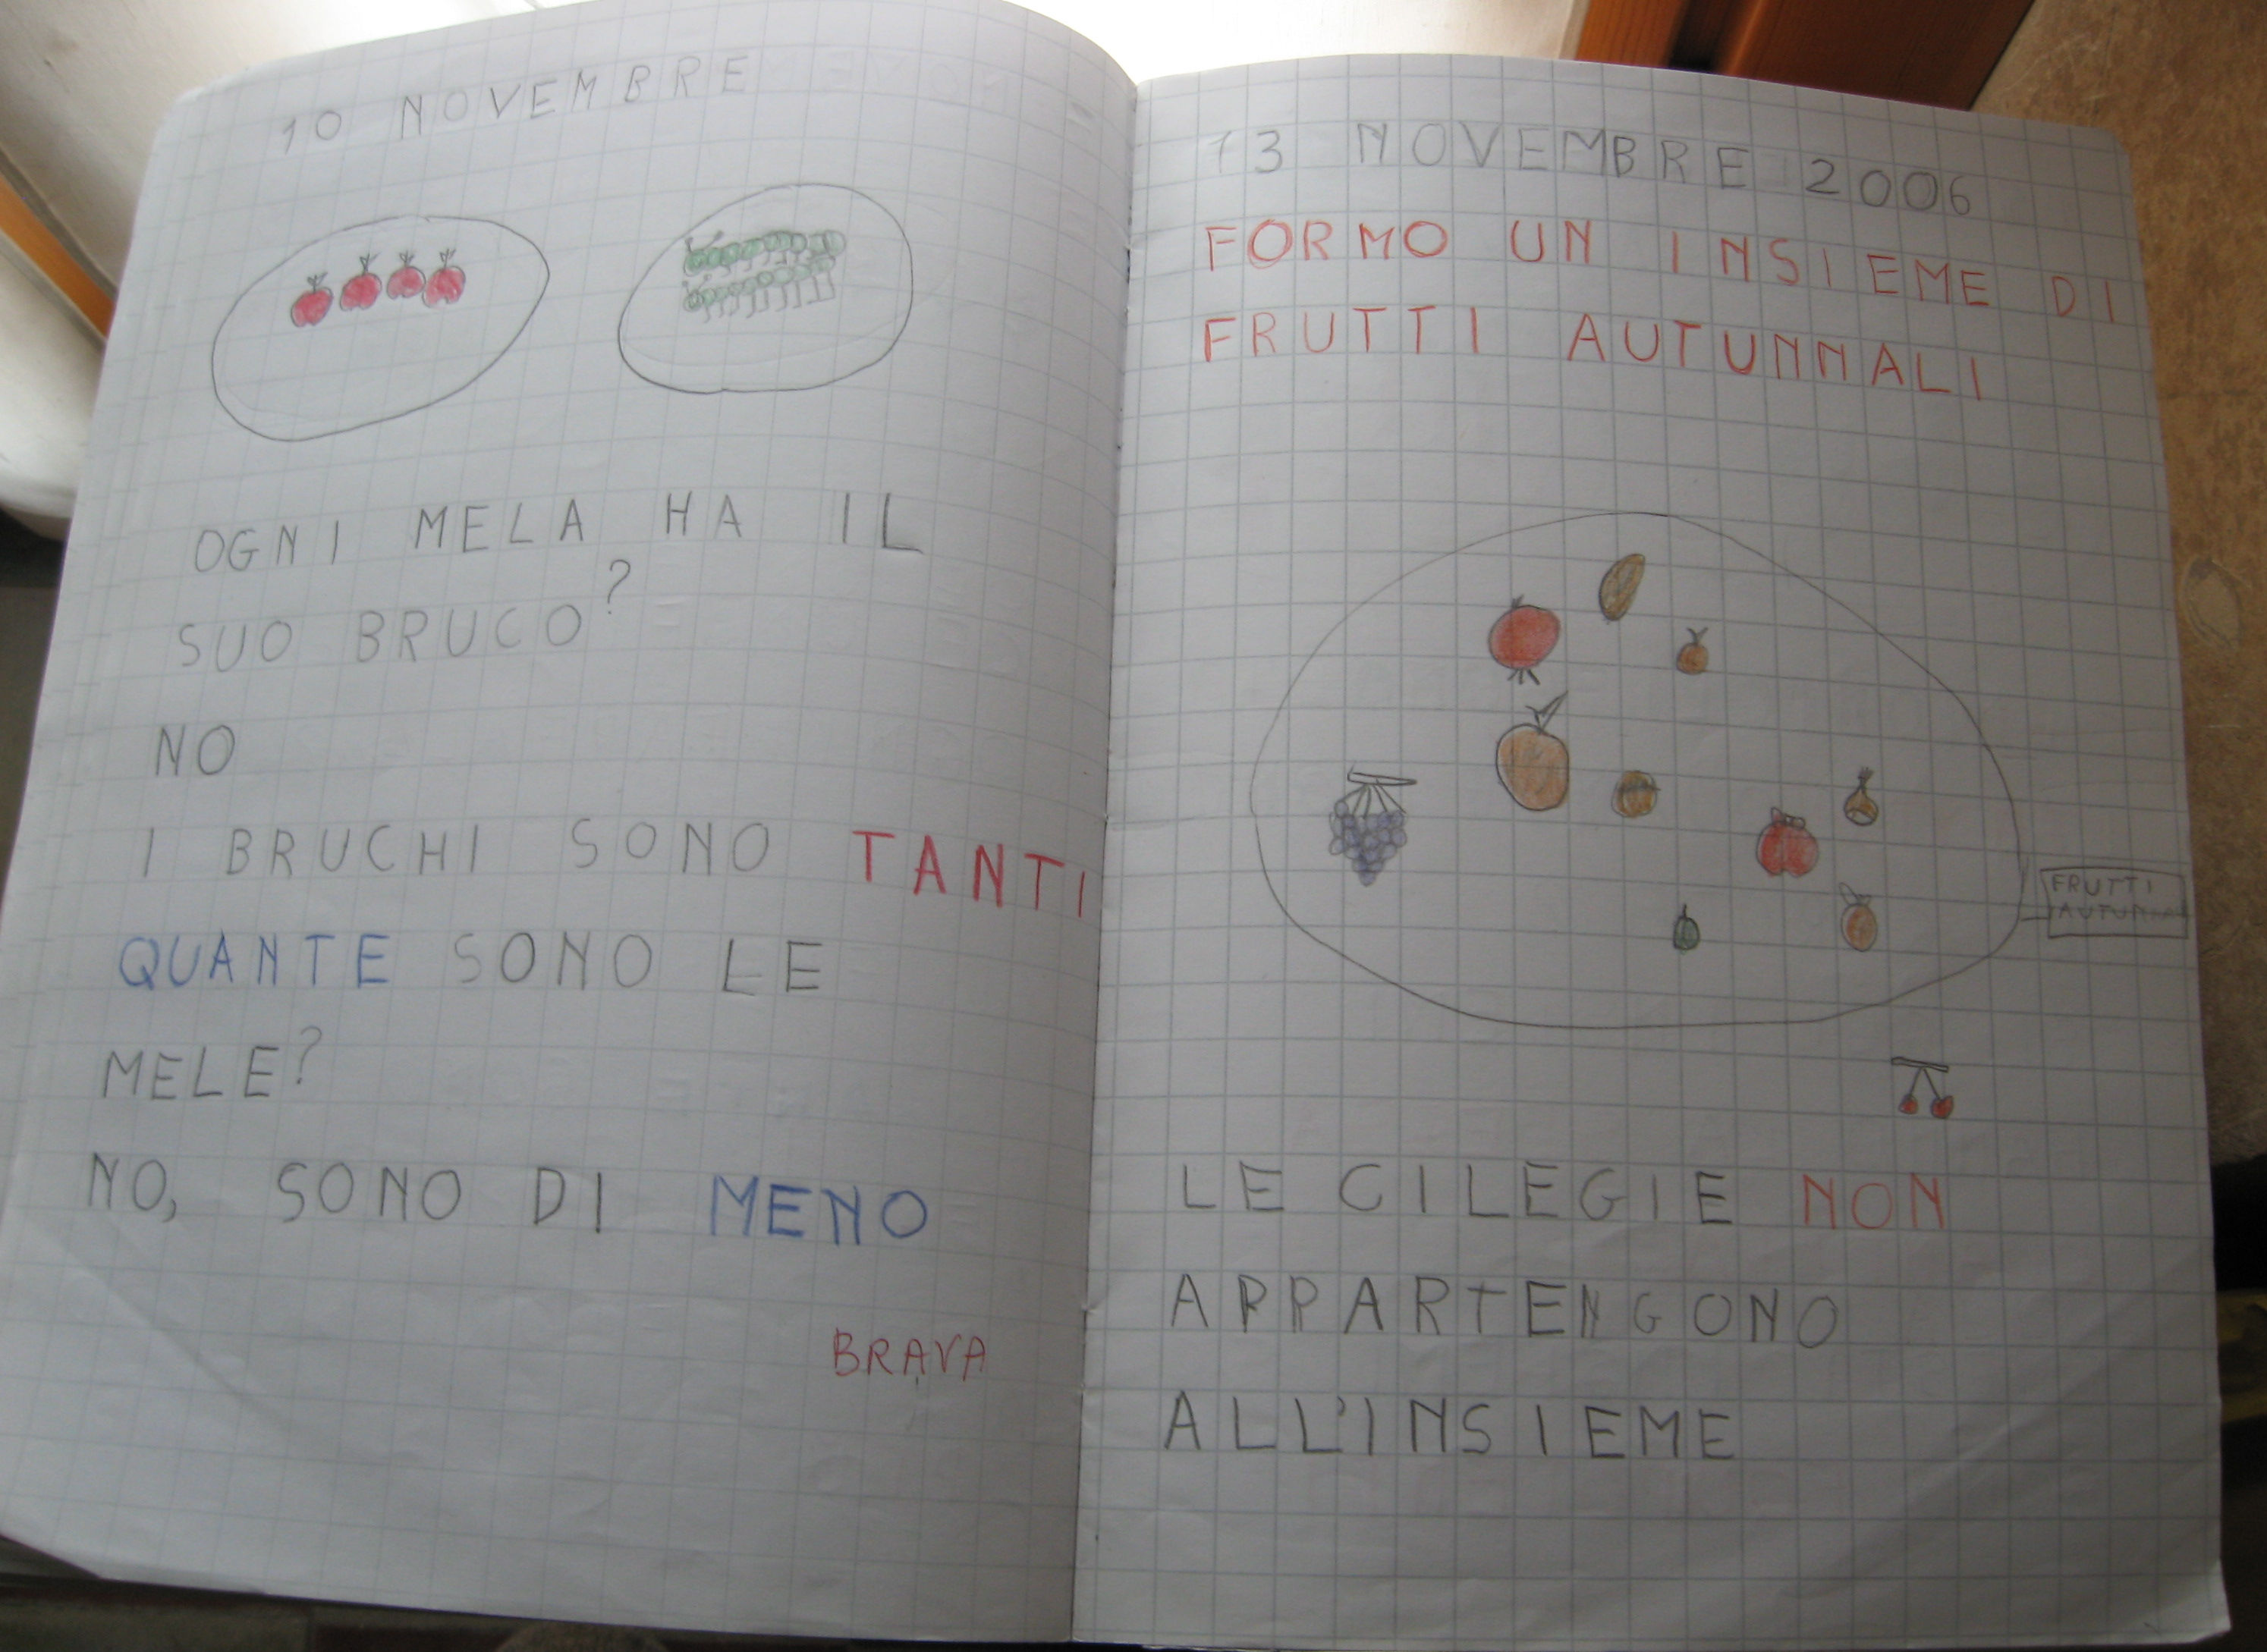 10 NOVEMBRE
OGNI MELA HA IL
SUO BRUCO?
NO
I BRUCHI SONO TANTI
QUANTE SONO LE
MELE?
NO, SONO DI MENO
BRAVA
13 NOVEMBRE 2006
FORMO UN INSIEME DI
FRUTTI AUTUNNALI
FRUTTI
LE CILEGIE NON
APPARTENGONO
ALL'INSIEME